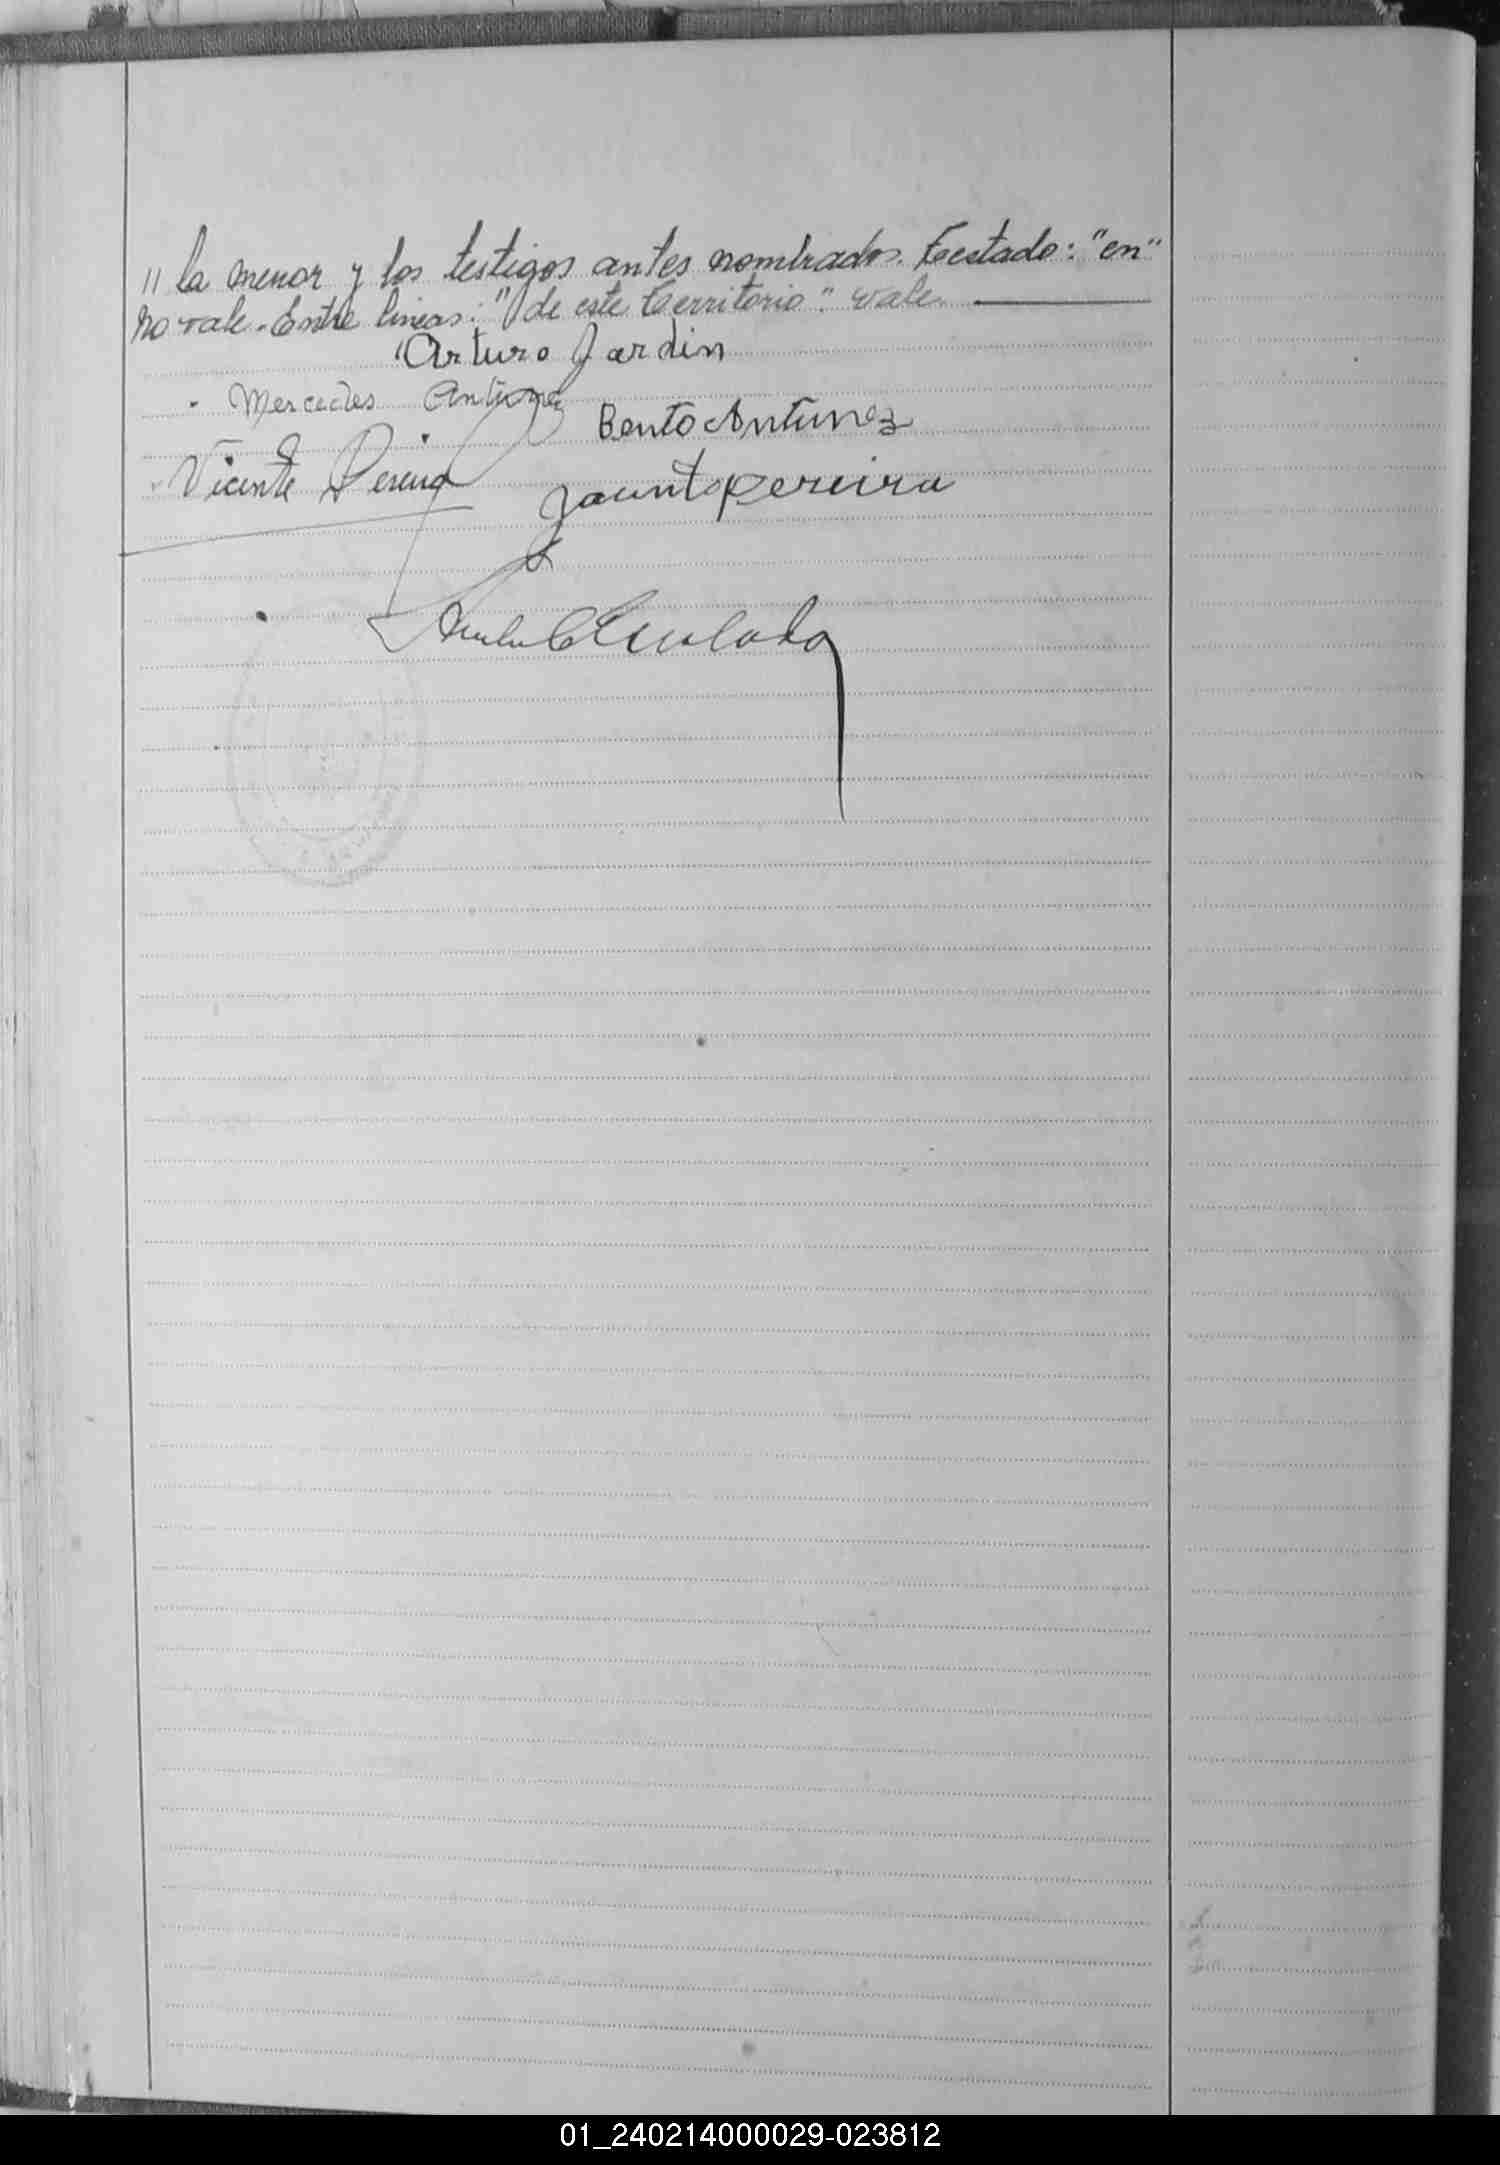 " la menor y los testigos antes nombrados. Testado: "en"
no vale. Entre lineas: "de este Territorio": vale.
Arturo Jardin
Mercedes Antunez
Bento Antunez
Vicente Pereira
Jacinto Pereira
01_240214000029-023812